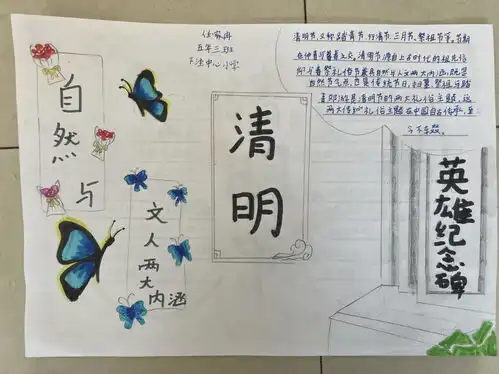 五年三班
中心小学
清明节,又称踏青节、行清节、三月节、祭祖节等。节期
在仲春与暮春之交。清明节源自上古时代的祖先信
仰与春祭礼俗节兼具自然与人文两大内涵,既是
自然节气点,也是传统节日,扫墓祭祖与踏
青郊游是清明节的两大礼俗主题,这
两大传统礼俗主题在中国自古传承,至
今不辍。
自然与
清明
文人两大内涵
英雄纪念碑